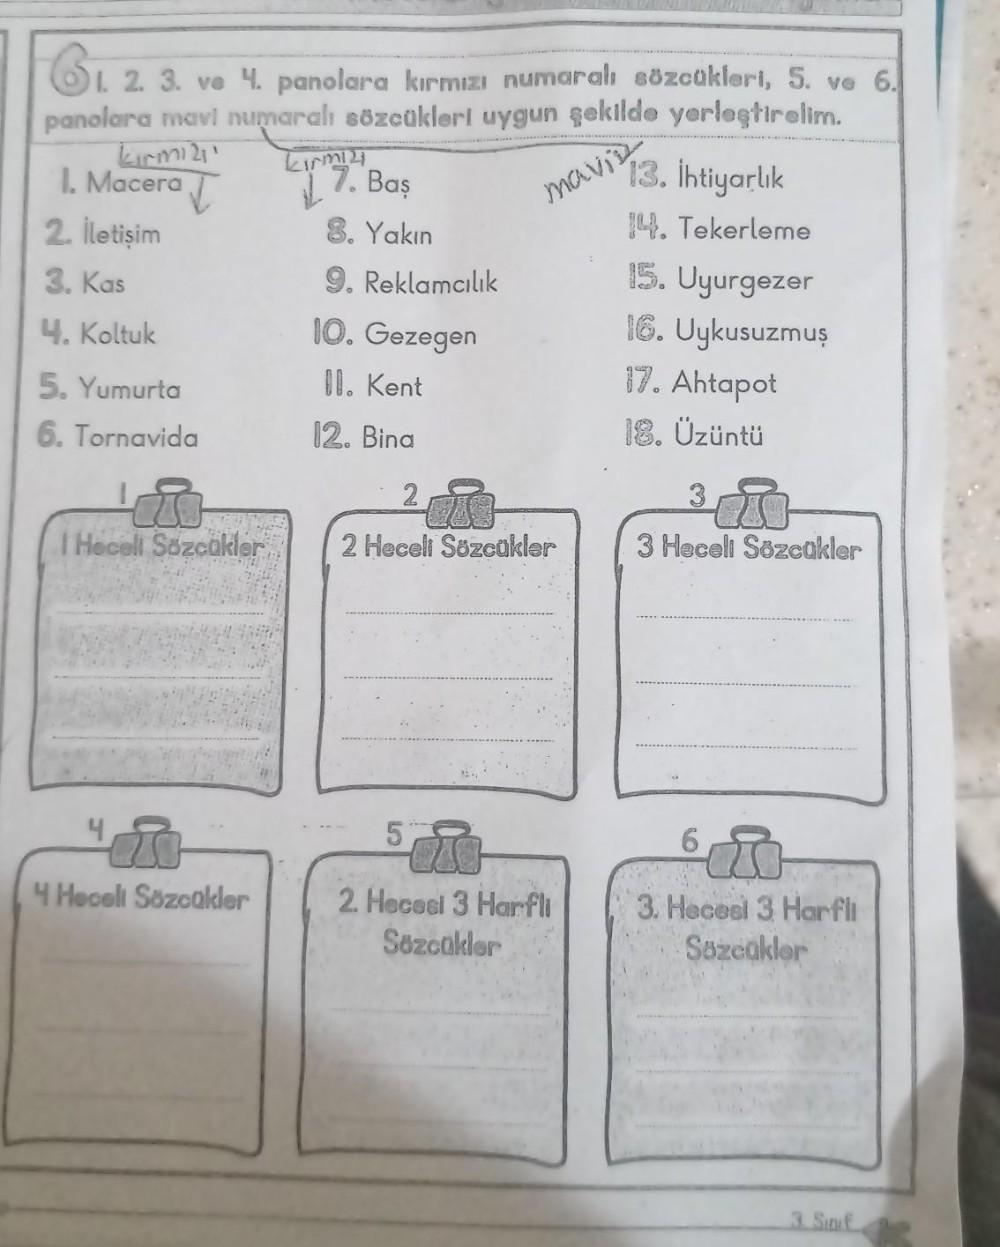 1. 2. 3. ve 4. panolara kırmızı numaralı sözcükleri, 5. ve 6.
panolara mavi numaralı sözcükleri uygun şekilde yerleştirelim.
kırmızı
kırmızı
mavi
1. Macera
2. İletişim
3. Kas
4. Koltuk
5. Yumurta
6. Tornavida
7. Baş
8. Yakın
9. Reklamcılık
10. Gezegen
11. Kent
12. Bina
13. İhtiyarlık
14. Tekerleme
15. Uyurgezer
16. Uykusuzmuş
17. Ahtapot
18. Üzüntü
1
1 Heceli Sözcükler
2
2 Heceli Sözcükler
3
3 Heceli Sözcükler
4
4 Heceli Sözcükler
5
2. Hecesi 3 Harfli
Sözcükler
6
3. Hecesi 3 Harfli
Sözcükler
3. Sınıf